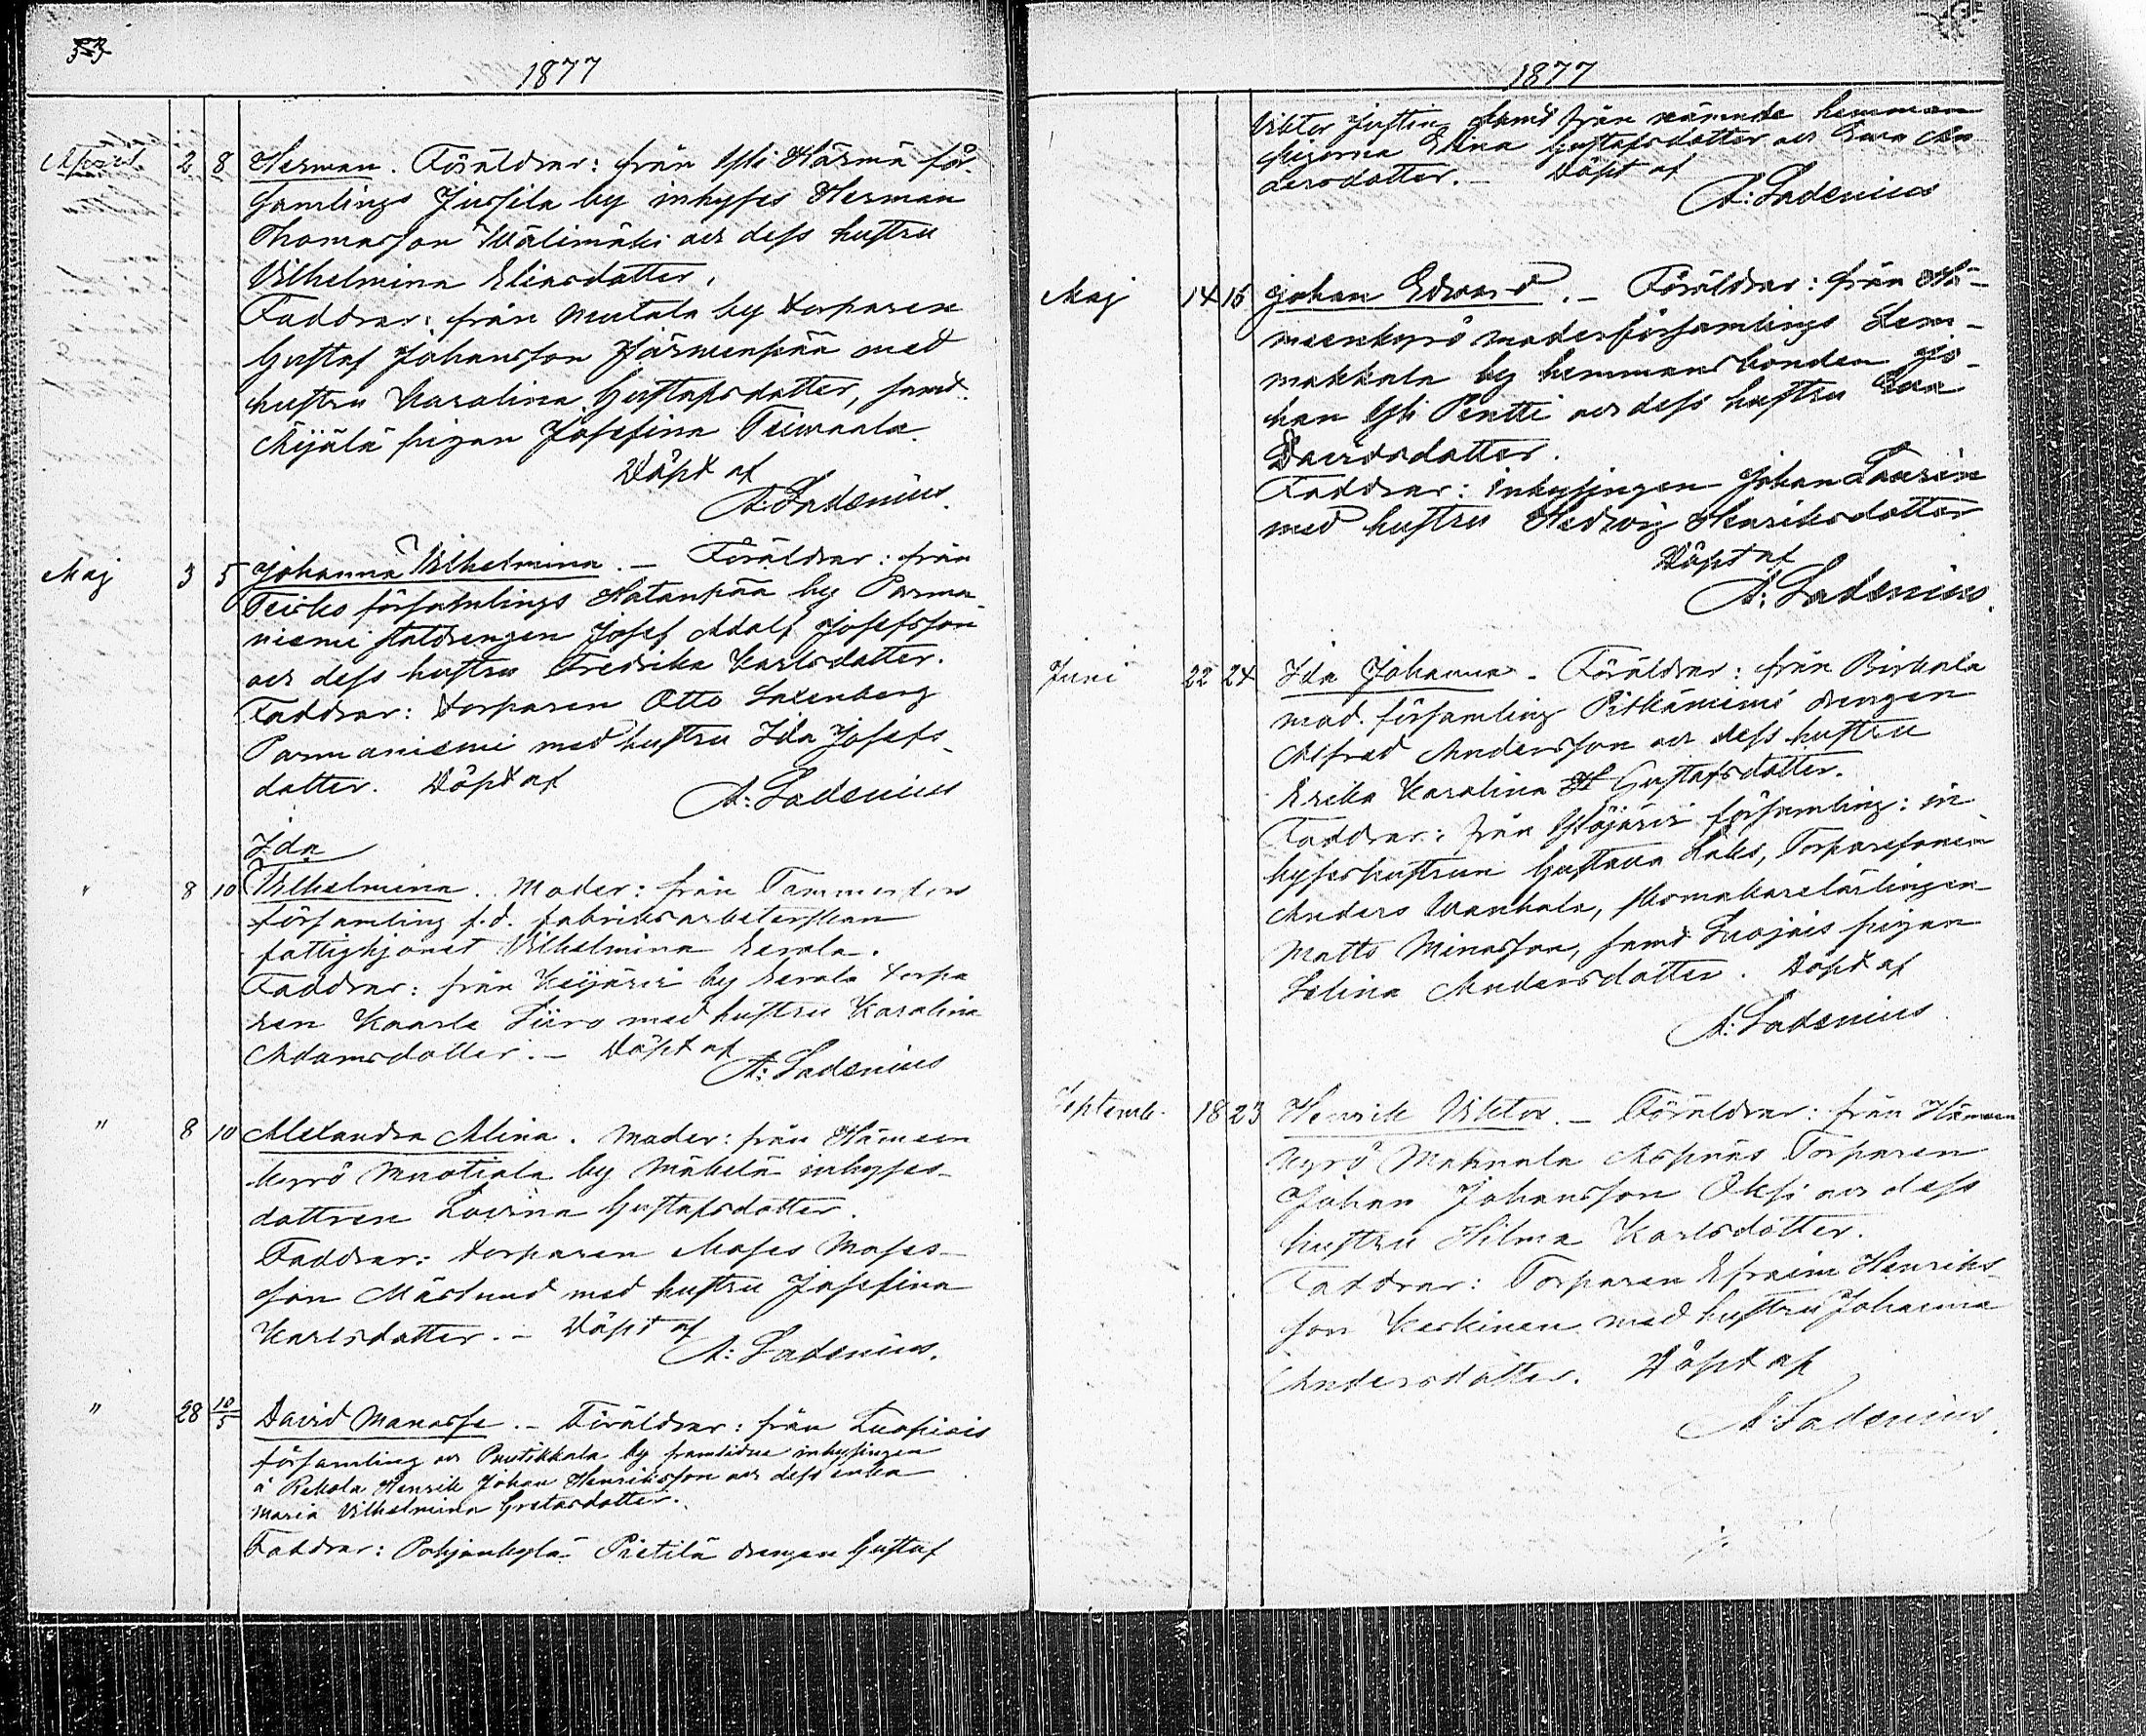 53
1877
April 2 8 Herman. Föräldrar: från Ylihärmä för-
samlings Jussila by inhyses Herman
Thomasson Välimäki och dess hustru
Vilhelmina Eliasdotter.
Faddrar: från Mutala by torparen
Gustaf Johansson Järvenpää med
hustru Karolina Gustafsdotter, samt
Äijälä pigan Josefina Teivaala.
Döpt af
A: Ladenius.
Maj 3 5 Johanna Vilhelmina. – Föräldrar: från
Teisko församlings Hatanpää by Parma-
niemi statdrengen Josef Adolf Josefsson
och dess hustru Fredrika Karlsdotter.
Faddrar: torparen Otto Saxenberg
Parmaniemi med hustru Ida Josefs-
dotter. Döpt af
A: Ladenius
Ida
" 8 10 Vilhelmina. Moder: från Tammerfors
församling f.d. fabriksarbeterskan
fattighjonet Vilhelmina Eerola.
Faddrar: från Keijärvi by Eerola torpa
ren Kaarle Siiro med hustru Karolina
Adamsdotter. – Döpt af
A: Ladenius
" 8 10 Alexandra Alina. Moder: från Hämeen
kyrö Muotiala by Mäkelä inhyses-
dottren Lovina Gustafsdotter.
Faddrar: torparen Moses Moses-
son Märlund med hustru Josefina
Karlsdotter. – Döpt af
A: Ladenius.
" 28 10/5 David Manasse. – Föräldrar: från Luopiois
församling och Puutikkala by framlidne inhysingen
å Rekola Henrik Johan Henriksson och dess enka
Maria Vilhelmina Gretasdotter.
Faddrar: Pohjankylä Pietilä drengen Gustaf
1877
Viktor Justin samt från nämnde hemman
pigorna Elina Gustafsdotter och Eva An
dersdotter. – Döpt af
A: Ladenius
Maj 14 15 Johan Edvard. – Föräldrar: från Hä-
meenkyrö moderförsamlings Lem-
makkala by hemmansbonden Jo-
han Yli Pentti och dess hustru Eva
Davidsdotter.
Faddrar: inhysingen Johan Laurén
med hustru Hedvig Henriksdotter
Döpt af
A: Ladenius.
Juni 22 24 Ida Johanna. Föräldrar: från Birkala
mod. församling Pitkäniemi drengen
Alfred Andersson och dess hustru
Erika Karolina Gustafsdotter.
Faddrar: från Ylöjärvi församling: in
hyseshustrun Gustava Laks, Torparesonen
Anders Vanhala, skomakarelärlingen
Matts Minasson, samt Luojais pigan
Selina Andersdotter. Döpt af
A: Ladenius.
Septemb. 18 23 Henrik Viktor. – Föräldrar: från Hämeen
kyrö Mahnala Aspnäs Torparen
Johan Johansson Oksi och dess
hustru Hilma Karlsdotter.
Faddrar: Torparen Efraim Henriks-
son Keskinen med hustru Johanna
Andersdotter. Döpt af
A: Ladenius.